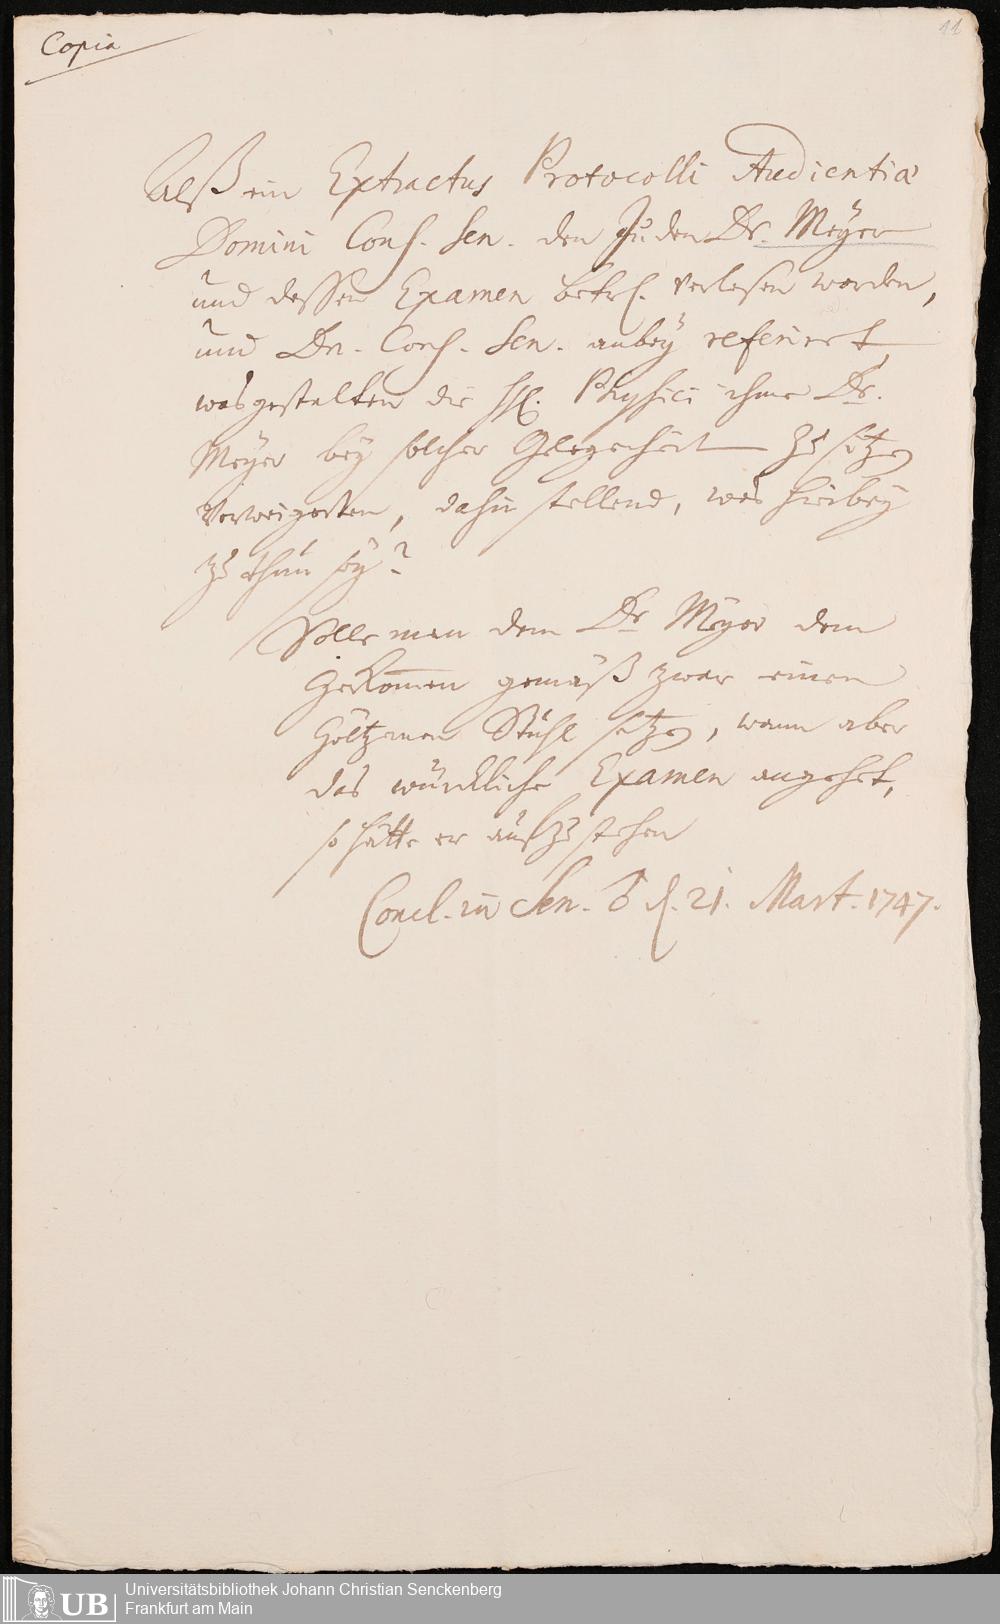 Copia
11
Alß ein Extractus Protocolli Audientiæ
Domini Cons. Sen. den Juden Dr. Meyer
und dessen Examen betrf. verlesen worden,
und Dn. Cons. Sen. anbey referiret,
wasgestalten die HH. Physici ihme Dr.
Meyer bey solcher Gelegenheit zu sitzen
verweigerten, dahin stellend, was hierbey
zu thun sey?
Solle man dem Dr Meyer dem
Herkom̄en gemäß zwar einen
höltzernen Stuhl setzen, wann aber
das würckliche Examen angehet,
so hätte er aufzustehen
Concl. in Sen. ♂ d. 21. Mart. 1747.
UB
Universitätsbibliothek Johann Christian Senckenberg
Frankfurt am Main